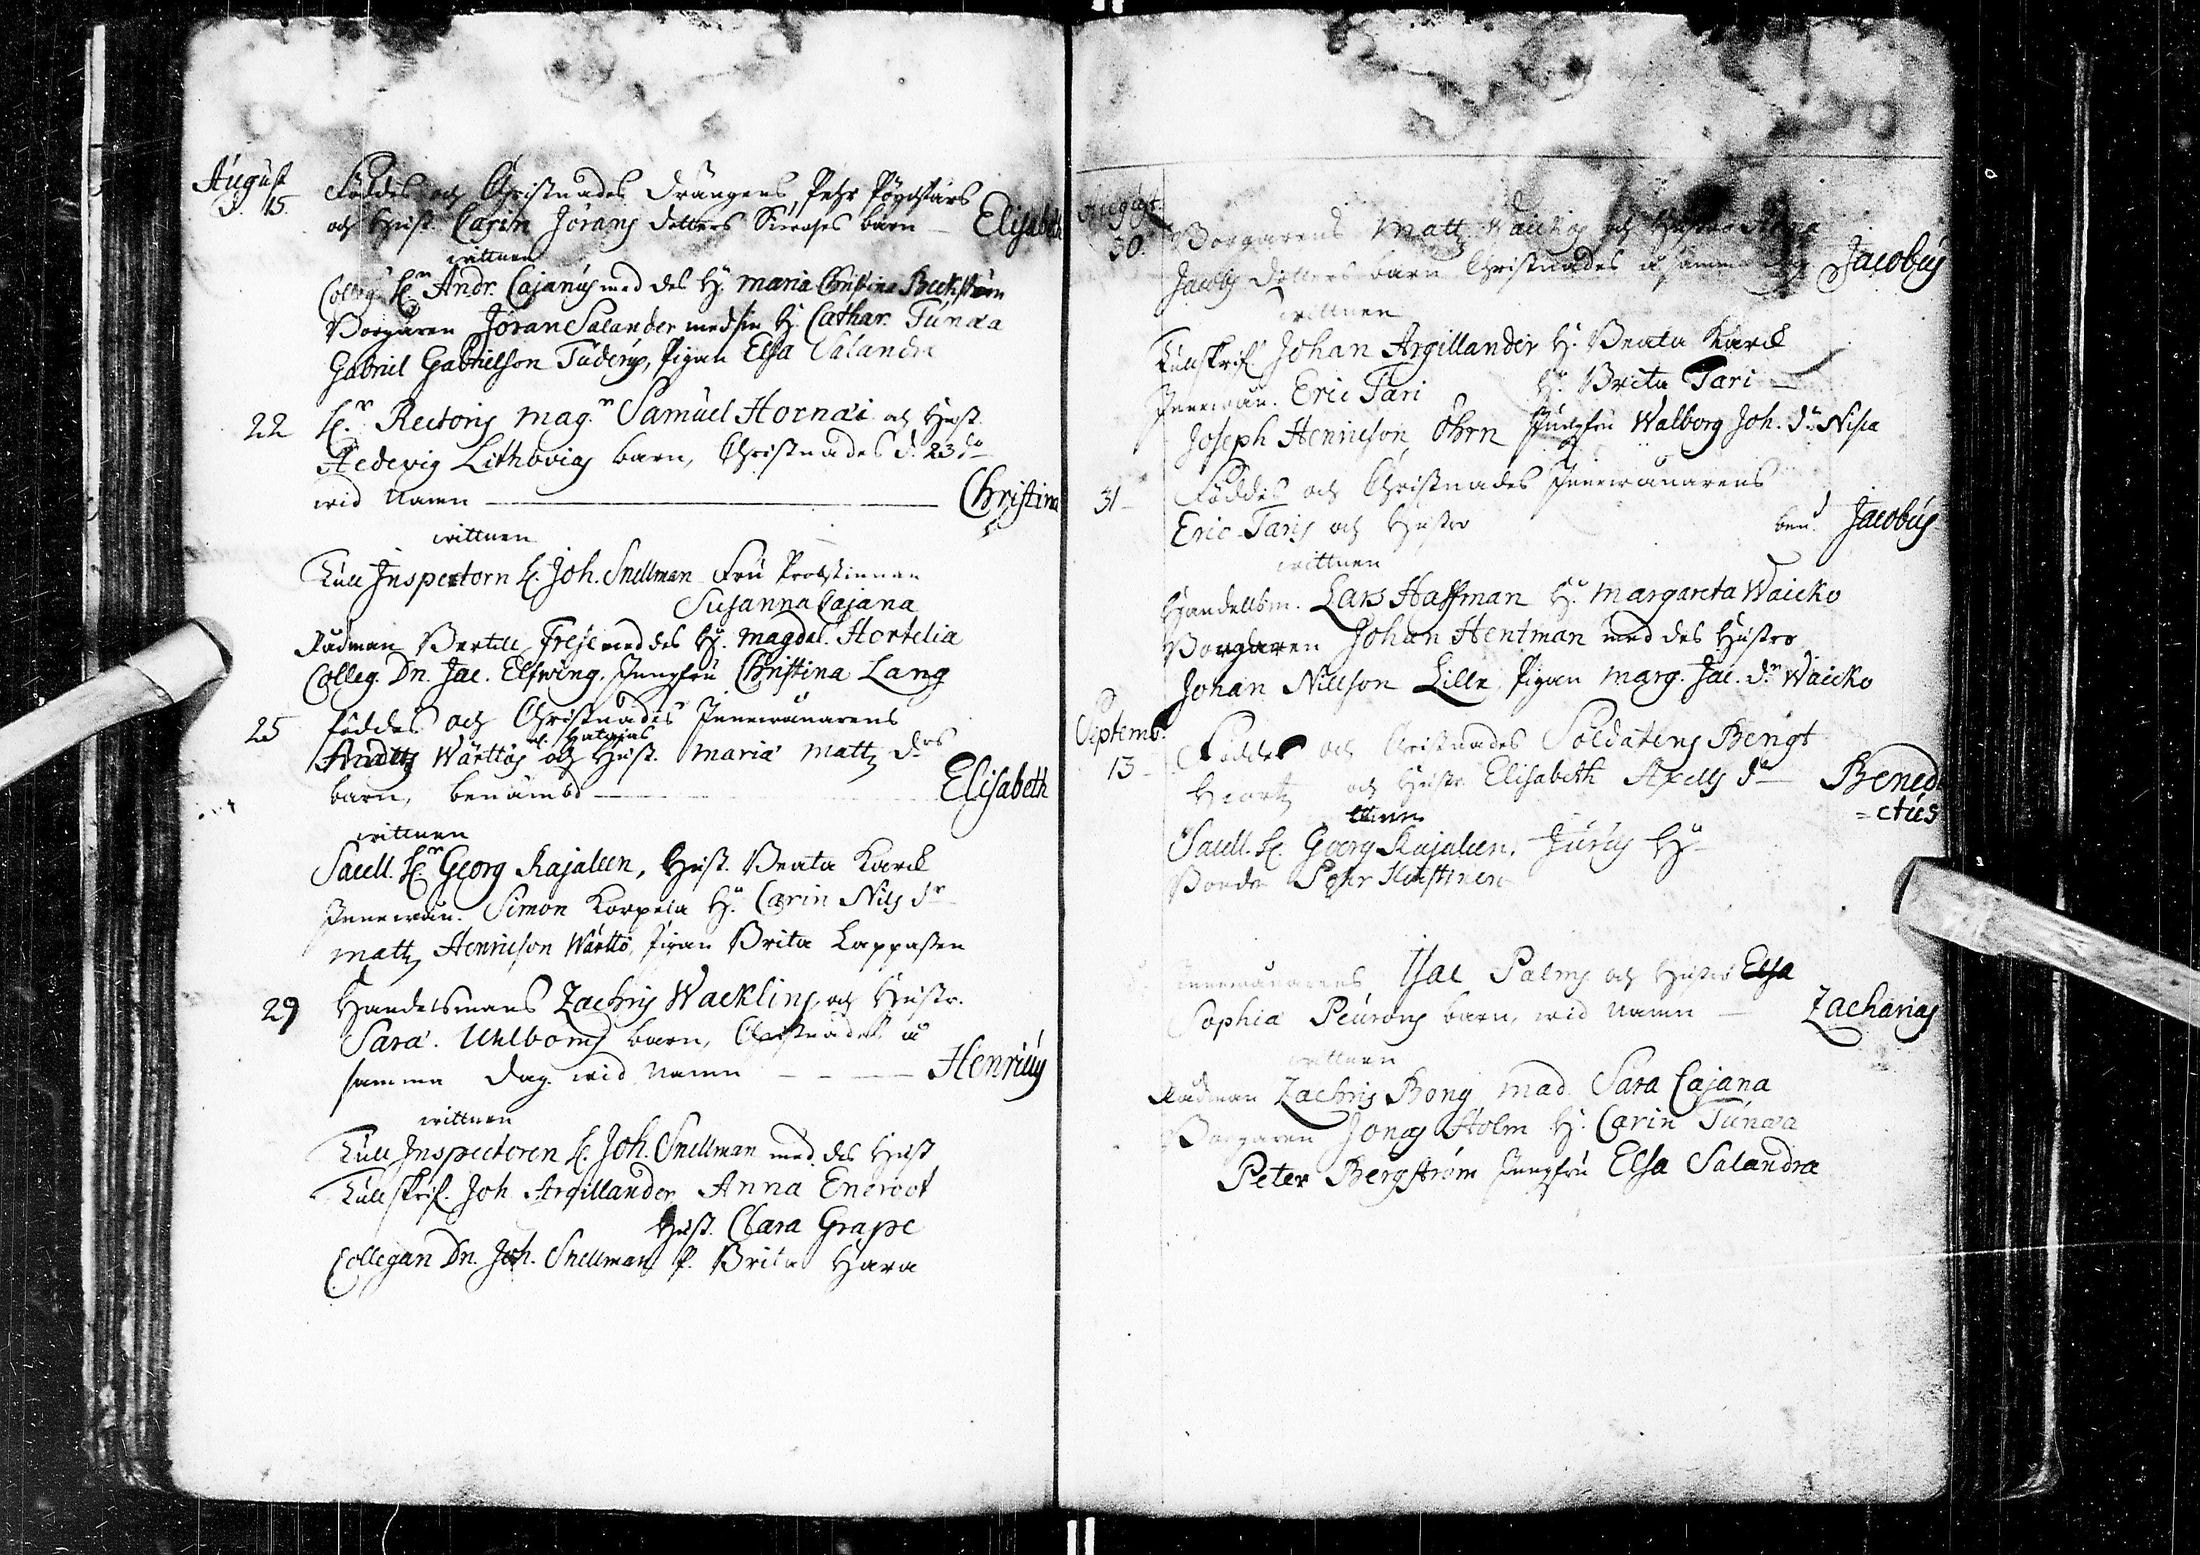 August
d. 15. Föddes och Christnades Drängens, Pehr
och Hust. Carin Jörans dotters barn — Elisabeth
wittnen
Colleg. Hr Andr. Cajanus med des H. Maria Christina Beckström
Borgaren Jöran Salander med sin H. Cathar. Tunæa
Gabriel Gabrielson Tuderus, Pigan Elsa Salandra
22 Hr Rectoris Mag.r Samuel Hornæi och Hust.
Hedevig Lithovias barn, Christnades d. 23 do
wid Namn — Christina
wittnen
Tull Inspectorn H. Joh. Snellman Fru Probstinnan
Susanna Cajana
Rådman Bertill Freje med des H. Magdal. Hortelia
Colleg. Dn. Jac. Elfwing. Jungfru Christina Lang
25 föddes och Christnades Innewånarens
Wärttös och Hust. Maria Mattz drs
barn, benämbd — Elisabeth
wittnen
Saell. Hr Georg Kajalen, Hust. Beata Karck
Innewån. Simon Korpela H. Carin Nils dr
Matts Henricson Wärttö, Pigan Brita Lappassen
29 Handelsmans Zachris Wacklins och Hustr.
Sara Uhlboms barn, Christnades å
samma dag wid Namn — Henricus
wittnen
Tull Inspectoren H. Joh. Snellman med des Hust
Tullskrif. Joh Argillander Anna Eneroot
Hust. Clara Grape
Collegan Dn. Joh. Snellman P. Brita Hara
August.
30. Borgarens Matts Waickos och Hustru
Jacobs Dotters barn Christnades å samma dag Jacobus
wittnen
Tullskrif Johan Argillander H. Beata Karck
Innewån. Eric Tari H. Brita Tari
Joseph Henricson Öhrn Jungfru Walborg Joh. dr Nisca
31 Föddes och Christnades Innewånarens
Eric Taris och Hustro ben. Jacobus
wittnen
Handelsm. Lars Haffman H. Margareta Waicko
Borgaren Johan Hentman med des Hustro
Johan Nillson Lille Pigan Marg. Jac. dr Waicko
Septemb.
13 Föddes och Christnades Soldatens Bengt
Hiorts och Hustr. Elisabeth Axells dr — Benedi
=ctus
Saell. H. Georg Kajalen, H.
Bonde Pehr
Innewånarens Isac Palms och Hustro Elsa
Sophia Peurons barn, wid Namn — Zacharias
wittnen
Rådman Zachris Bong Mad. Sara Cajana
Borgaren Jonas Holm H. Carin Tunæa
Peter Bergström Jungfru Elsa Salandra